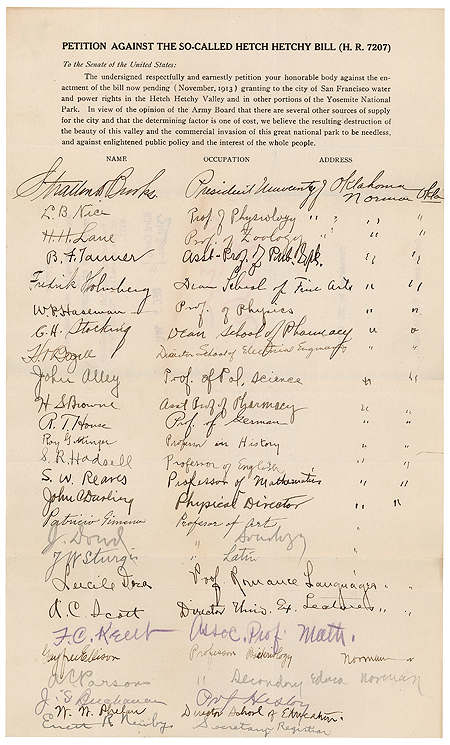 PETITION AGAINST THE SO-CALLED HETCH HETCHY BILL (H. R. 7207)
To the Senate of the United States:
The undersigned respectfully and earnestly petition your honorable body against the en-
actment of the bill now pending (November, 1913) granting to the city of San Francisco water
and power rights in the Hetch Hetchy Valley and in other portions of the Yosemite National
Park. In view of the opinion of the Army Board that there are several other sources of supply
for the city and that the determining factor is one of cost, we believe the resulting destruction of
the beauty of this valley and the commercial invasion of this great national park to be needless,
and against enlightened public policy and the interest of the whole people.
NAME OCCUPATION ADDRESS
Stratton D Brooks. President University of Oklahoma Norman Okla
L. B. Nice Prof of Physiology " " " "
H. H. Lane Prof. of Zoology " " "
B. F. Tanner Asst-Prof. of " "
Fredrik Holmberg Dean School of Fine Arts " " "
W. P. Haseman Prof. of Physics " "
C. H. Stocking Dean School of Pharmacy " "
Director School of Electrical Engineering " "
John Alley Prof. of Pol. Science " "
H S Browne Asst Prof of Pharmacy " "
R. T. House Prof. of German " "
Roy Gittinger Professor in History " "
S. R. Hadsell Professor of English " "
S. W. Reaves Professor of Mathematics " "
John C Darling Physical Director " "
Patricio Gimeno Professor of Art "
J. Dowd " Sociology
J W Sturgis " Latin "
Lucile Dora Prof Romance Languages " "
A. C. Scott Director Univ. Ex. Lectures " "
F. C. Kent Assoc. Prof. Math.
Guyfred Ellison Professor Norman
J C Parsons " Secondary Educa Norman
J. S Buchanan Prof History
W. W. Phelan Director School of Education.
Secretary Registrar